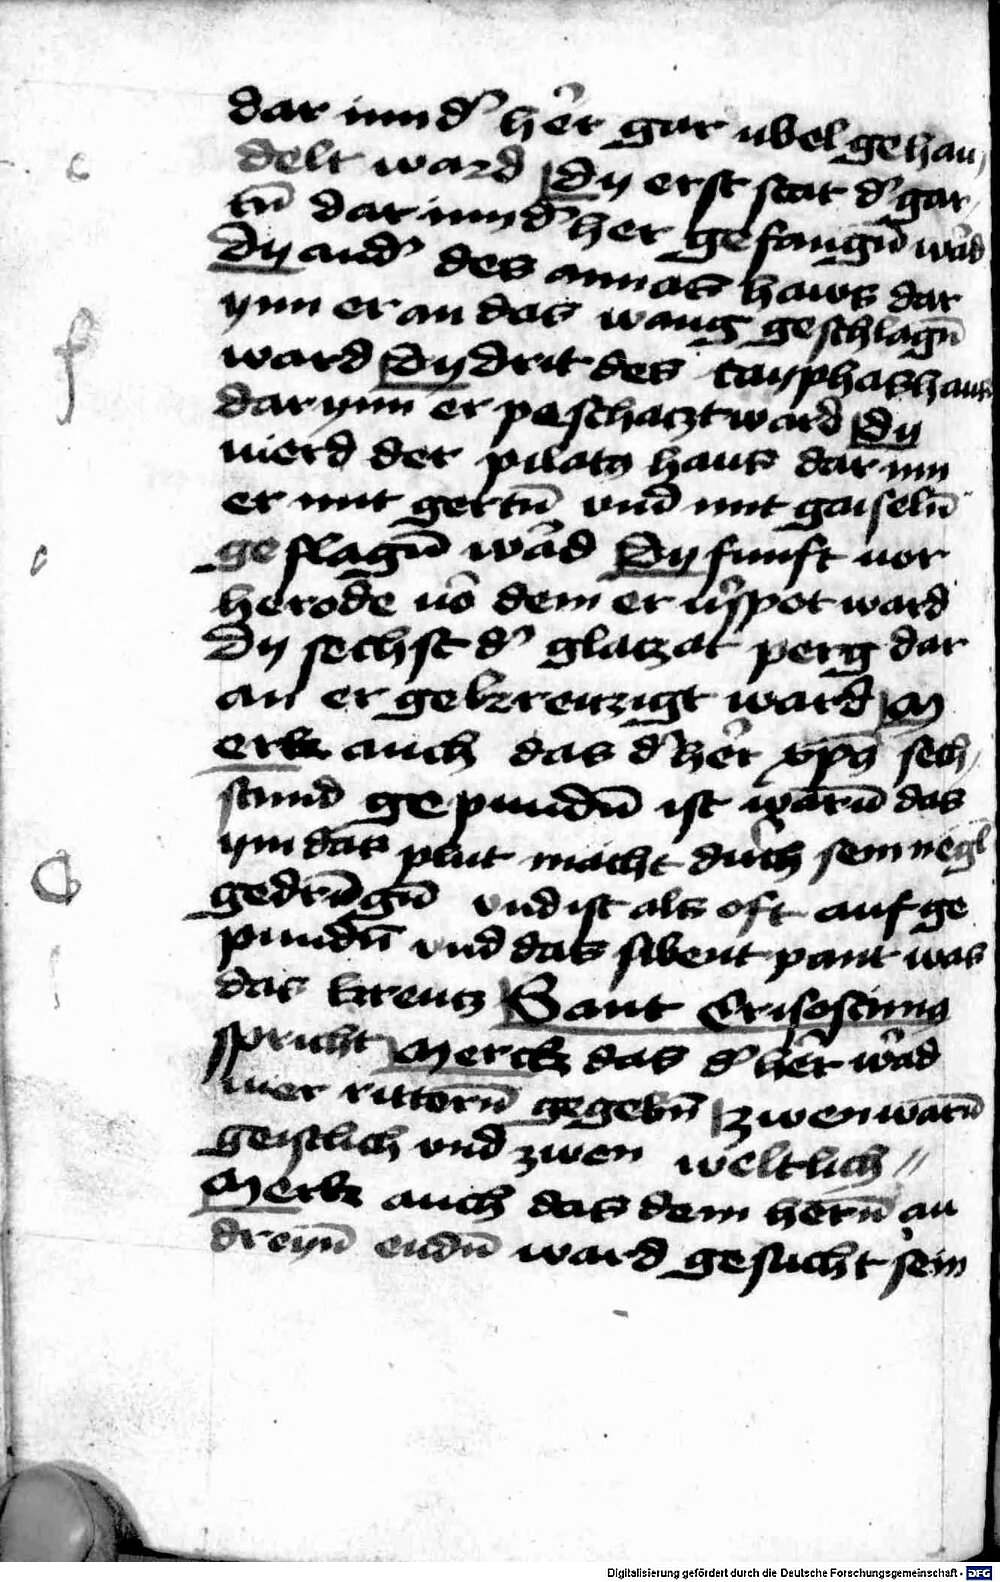 dar inn d' her gar ubel gehan,
delt ward Dy erst stat d' gar,
tn̄ dar inn d' her gefangn̄ wad
Dy and' des annas haws dar
ynn er an das wang geschlagn̄
ward Dy drit des cayphas haus
dar ynn er peschatzt ward Dy
vierd der pilatꝰ haus dar inn
er mit gertn̄ vnd mit gaiseln̄
geslagn̄ wad Dy funft vor
herode vō dem er v'spot ward
Dy sechst d' glatzat perg dar
an er gekreuzigt ward M
erk auch das d' her xp̄s sech,
stund gepundn̄ ist warū das
ym das plut macht durch sein negl
gedrūgn̄ vnd ist als oft auf ge
pundn̄ vnd das sibent pant was
das kreutz Sant Crisostimꝰ
spricht Merck das d' her wad
vier rittern̄ gegebn̄ zwen warn̄
geistlich vnd zwen weltlich //
Merk auch das dem hern̄ an
dreyn̄ endn̄ ward gesucht sein
Digitalisierung gefördert durch die Deutsche Forschungsgemeinschaft - DFG